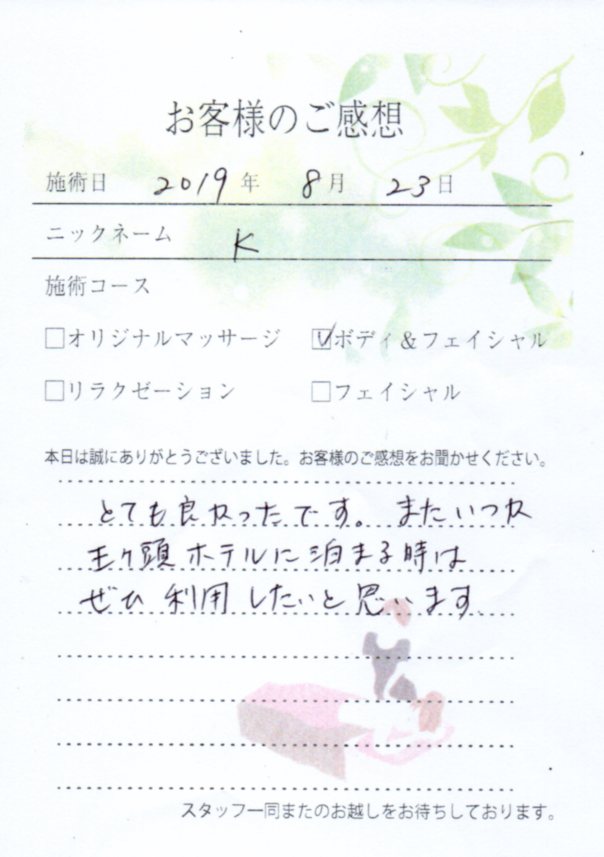 お客様のご感想
施術日 2019年 8月 23日
ニックネーム K
施術コース
□オリジナルマッサージ ☑ボディ&フェイシャル
□リラクゼーション □フェイシャル
本日は誠にありがとうございました。お客様のご感想をお聞かせください。
とても良かったです。またいつか
王ヶ頭ホテルに泊まる時は
ぜひ利用したいと思います
スタッフ一同またのお越しをお待ちしております。